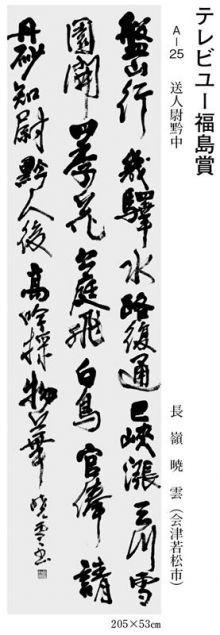 テレビユー福島賞
A－25 送人尉黔中
長嶺曉雲（会津若松市）
盤山行幾驛水路復通巴峽漲三川雪
園開四季花公庭飛白鳥官俸請
丹砂知尉黔人後高吟採物華 曉雲書
205×53cm